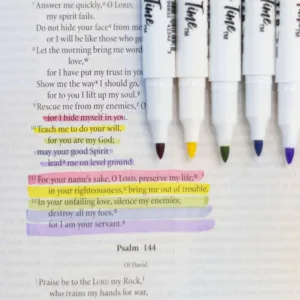 ⁷Answer me quickly, O LORD;
my spirit fails.
Do not hide your face from me
or I will be like those who go
⁸Let the morning bring me word
love,
for I have put my trust in you
Show me the way I should go,
for to you I lift up my soul.
⁹Rescue me from my enemies, O
for I hide myself in you.
¹⁰Teach me to do your will,
for you are my God;
may your good Spirit
lead me on level ground.
¹¹For your name's sake, O LORD, preserve my life;
in your righteousness, bring me out of trouble.
¹²In your unfailing love, silence my enemies;
destroy all my foes,
for I am your servant.
Psalm 144
Of David.
¹Praise be to the LORD my Rock,
who trains my hands for war,
Time™
Time™
Time™
Time™